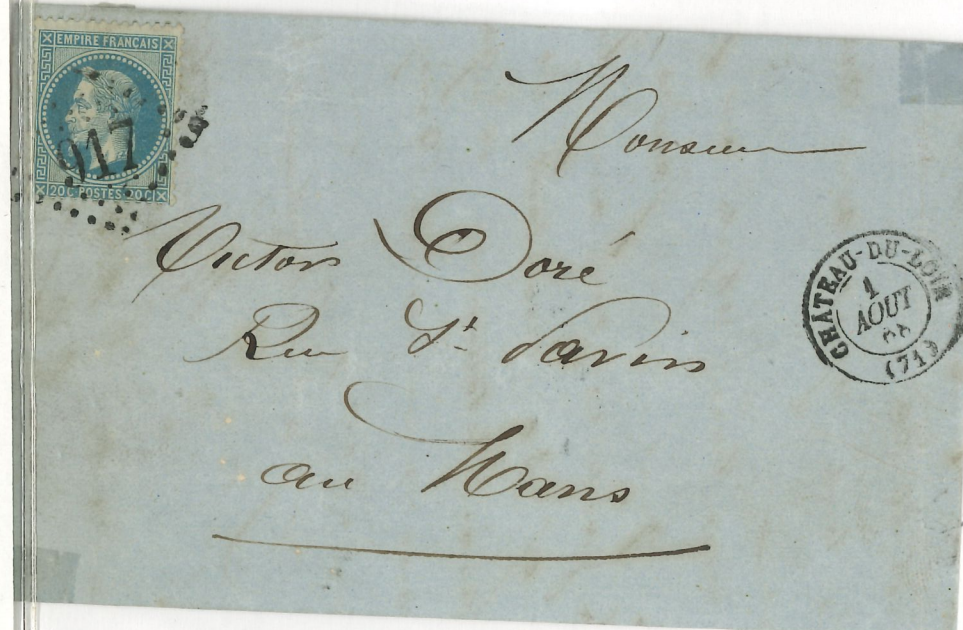 EMPIRE FRANÇAIS
917
20 C POSTES 20 C
Monsieur
Victor Doré
Rue St. Pavin
au Mans
CHATEAU-DU-LOIR
1
AOUT
68
(71)